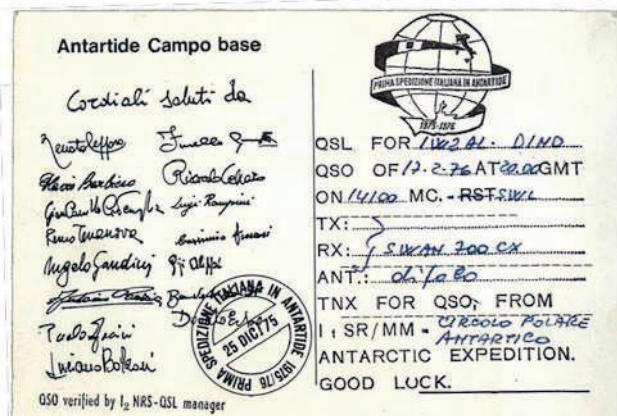 Antartide Campo base
Cordiali saluti da
Renato Cepparo
Flavio Barbiero
Riccardo
Luigi Rampini
Remo Terranova
Angelo Gandini
PRIMA SPEDIZIONE ITALIANA IN ANTARTIDE 1975/76
25 DIC 75
QSO verified by I₂ NRS-QSL manager
PRIMA SPEDIZIONE ITALIANA IN ANTARTIDE
1975-1976
QSL FOR DINO
QSO OF 17.2.76 AT 20.00 GMT
ON 14100 MC. - RST SWL
TX:
RX: SWAN 700 CX
ANT.: dipolo
TNX FOR QSO, FROM
I₁ SR/MM - CIRCOLO POLARE
ANTARTICO
ANTARCTIC EXPEDITION.
GOOD LUCK.